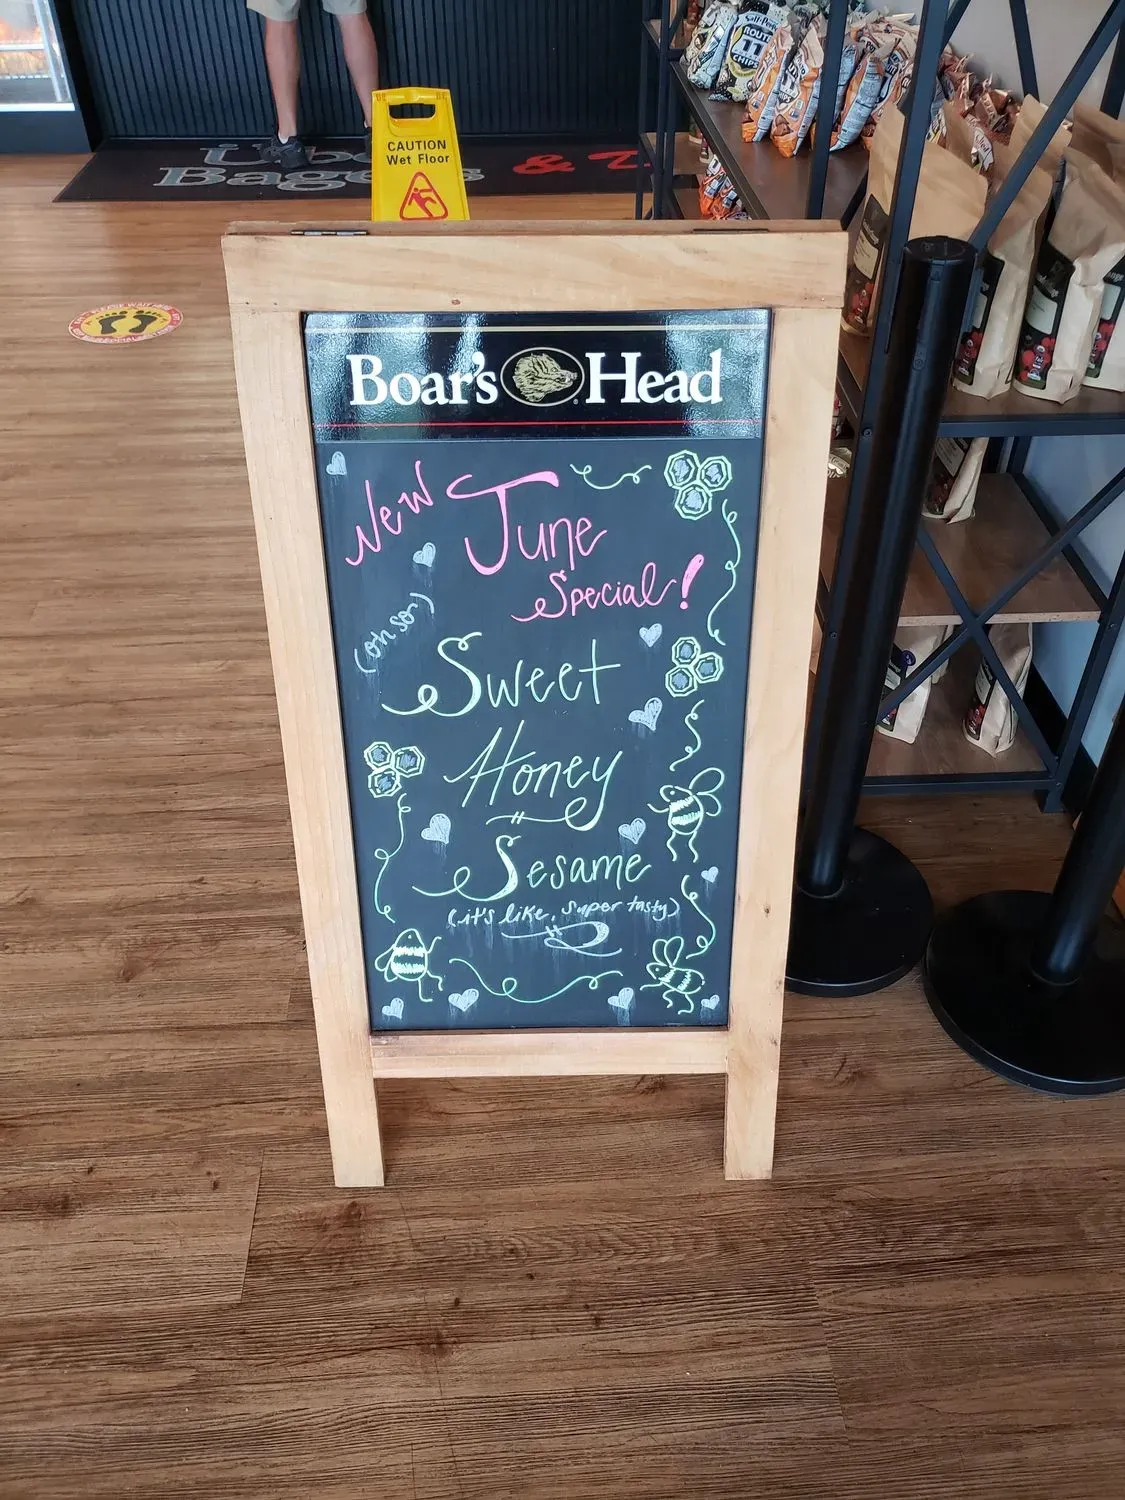 CAUTION
Wet Floor
Bagels & 
ROUTE
11
CHIPS
Boar's Head
New June
Special!
(oh so)
Sweet
Honey
Sesame
(it's like, super tasty)